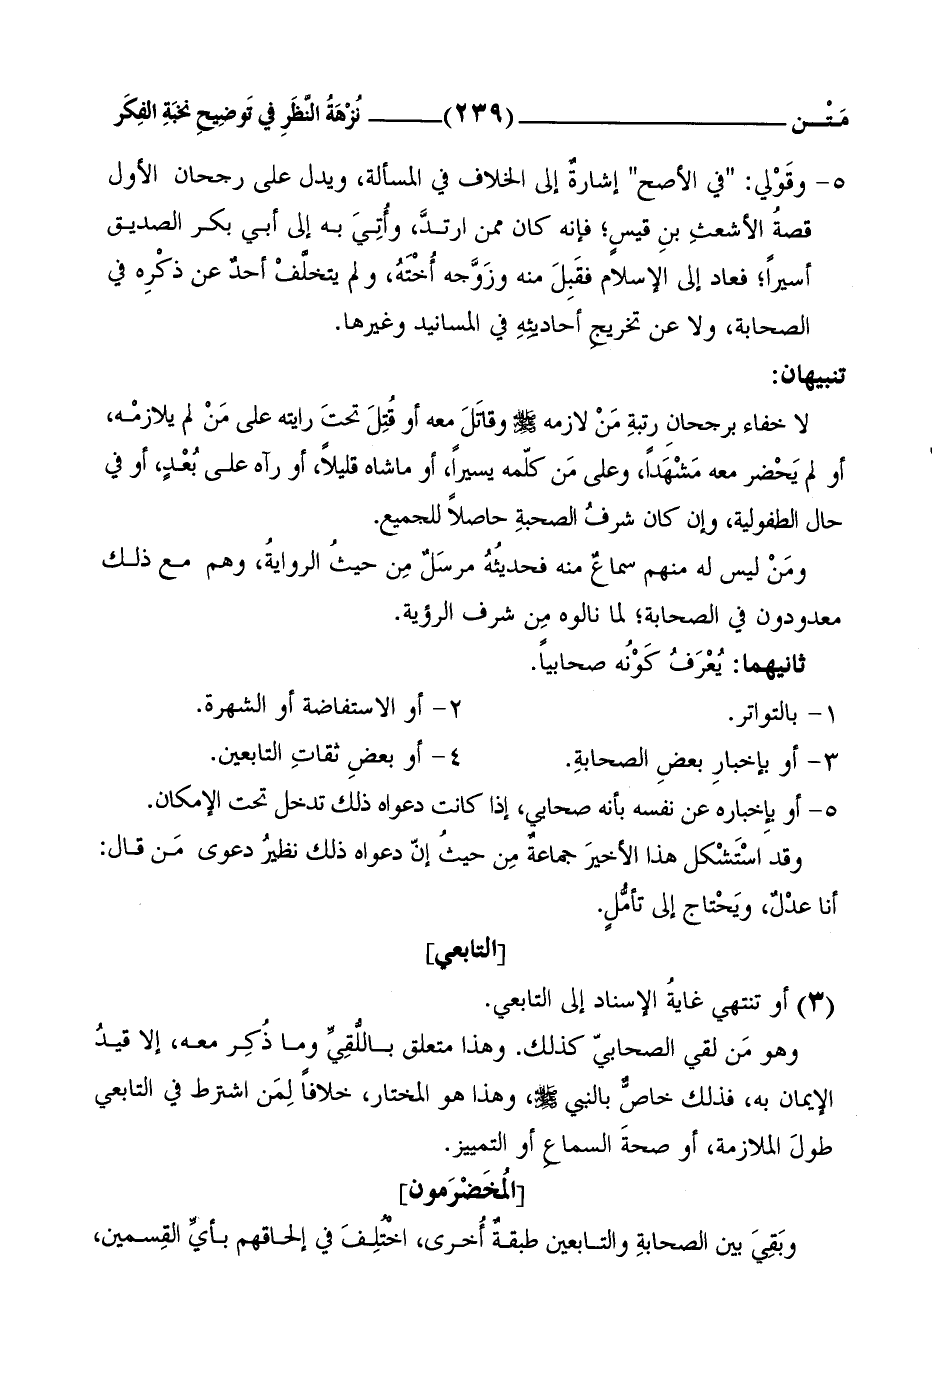 مَتْـــن ــــــــــــ (٢٣٩) ــــــــــــ نُزْهَةُ النَّظَرِ في تَوضِيحِ نخبَةِ الفِكَر
٥- وقَوْلي: "في الأصح" إشارةٌ إلى الخلاف في المسألة، ويدل على رجحان الأول
قصةُ الأشعثِ بنِ قيسٍ؛ فإنه كان ممن ارتدَّ، وأُتِيَ به إلى أبي بكر الصديق
أسيراً؛ فعاد إلى الإسلام فقَبِلَ منه وزَوَّجه أُخْتَهُ، ولم يتخلَّفْ أحدٌ عن ذكْرِه في
الصحابة، ولا عن تخريجِ أحاديثِهِ في المسانيد وغيرها.
تنبيهان:
لا خفاء برجحانِ رتبةِ مَنْ لازمه ﷺ وقاتَلَ معه أو قُتِلَ تحتَ رايته على مَنْ لم يلازمْه،
أو لم يَحْضر معه مَشْهَداً، وعلى مَن كلّمه يسيراً، أو ماشاه قليلاً، أو رآه على بُعْدٍ، أو في
حال الطفولية، وإن كان شرفُ الصحبةِ حاصلاً للجميع.
ومَنْ ليس له منهم سماعٌ منه فحديثُهُ مرسَلٌ مِن حيثُ الروايةُ، وهم مع ذلك
معدودون في الصحابة؛ لما نالوه مِن شرف الرؤية.
ثانيهما: يُعْرَفُ كَوْنُه صحابياً.
١- بالتواتر. ٢- أو الاستفاضة أو الشهرة.
٣- أو بإخبارِ بعضِ الصحابةِ. ٤- أو بعضِ ثقاتِ التابعين.
٥- أو بإخباره عن نفسه بأنه صحابي، إذا كانت دعواه ذلك تدخل تحت الإمكان.
وقد اسْتَشْكل هذا الأخيرَ جماعةٌ مِن حيثُ إنّ دعواه ذلك نظيرُ دعوى مَن قال:
أنا عدْلٌ، ويَحْتاج إلى تأمُّلٍ.
[التابعي]
(٣) أو تنتهي غايةُ الإسناد إلى التابعي.
وهو مَن لقي الصحابيّ كذلك. وهذا متعلق باللُّقِيِّ وما ذُكِر معه، إلا قيدُ
الإيمان به، فذلك خاصٌّ بالنبي ﷺ، وهذا هو المختار، خلافاً لِمَن اشترط في التابعي
طولَ الملازمة، أو صحةَ السماعِ أو التمييز.
[المُخَضْرَمون]
وبَقِيَ بين الصحابةِ والتابعين طبقةٌ أُخرى، اخْتُلِفَ في إلحاقهم بأيِّ القِسمين،